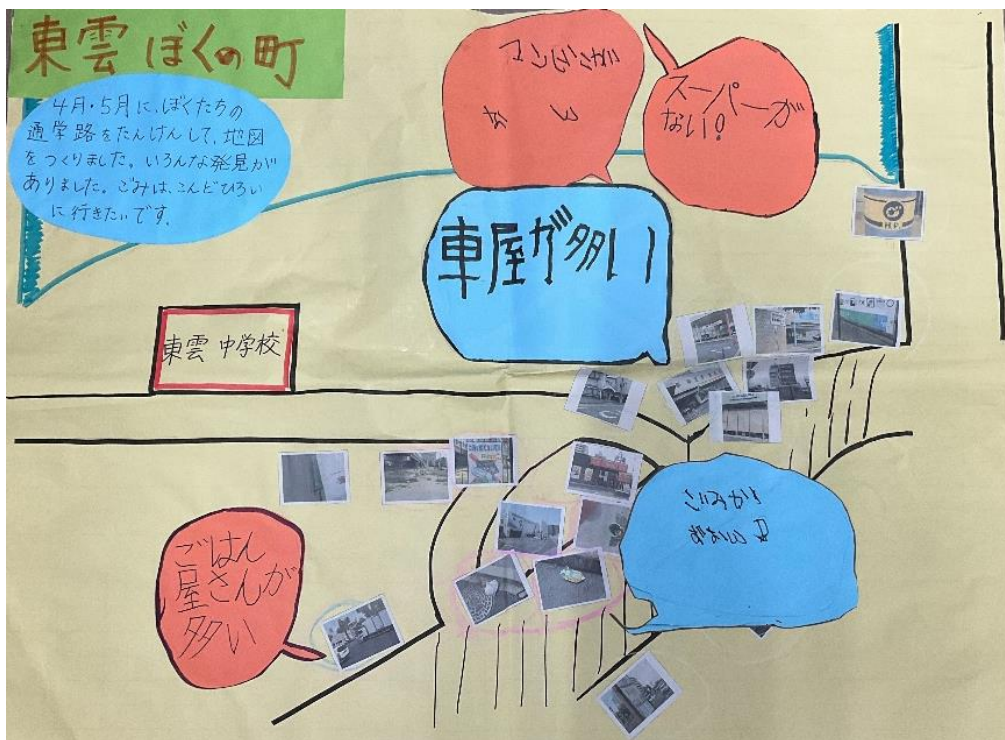 東雲ぼくの町
4月・5月に、ぼくたちの
通学路をたんけんして、地図
をつくりました。いろんな発見が
ありました。ごみは、こんどひろい
に行きたいです。
スーパーが
ない!
車屋が多い
東雲 中学校
ごはん
屋さんが
多い
H.P.